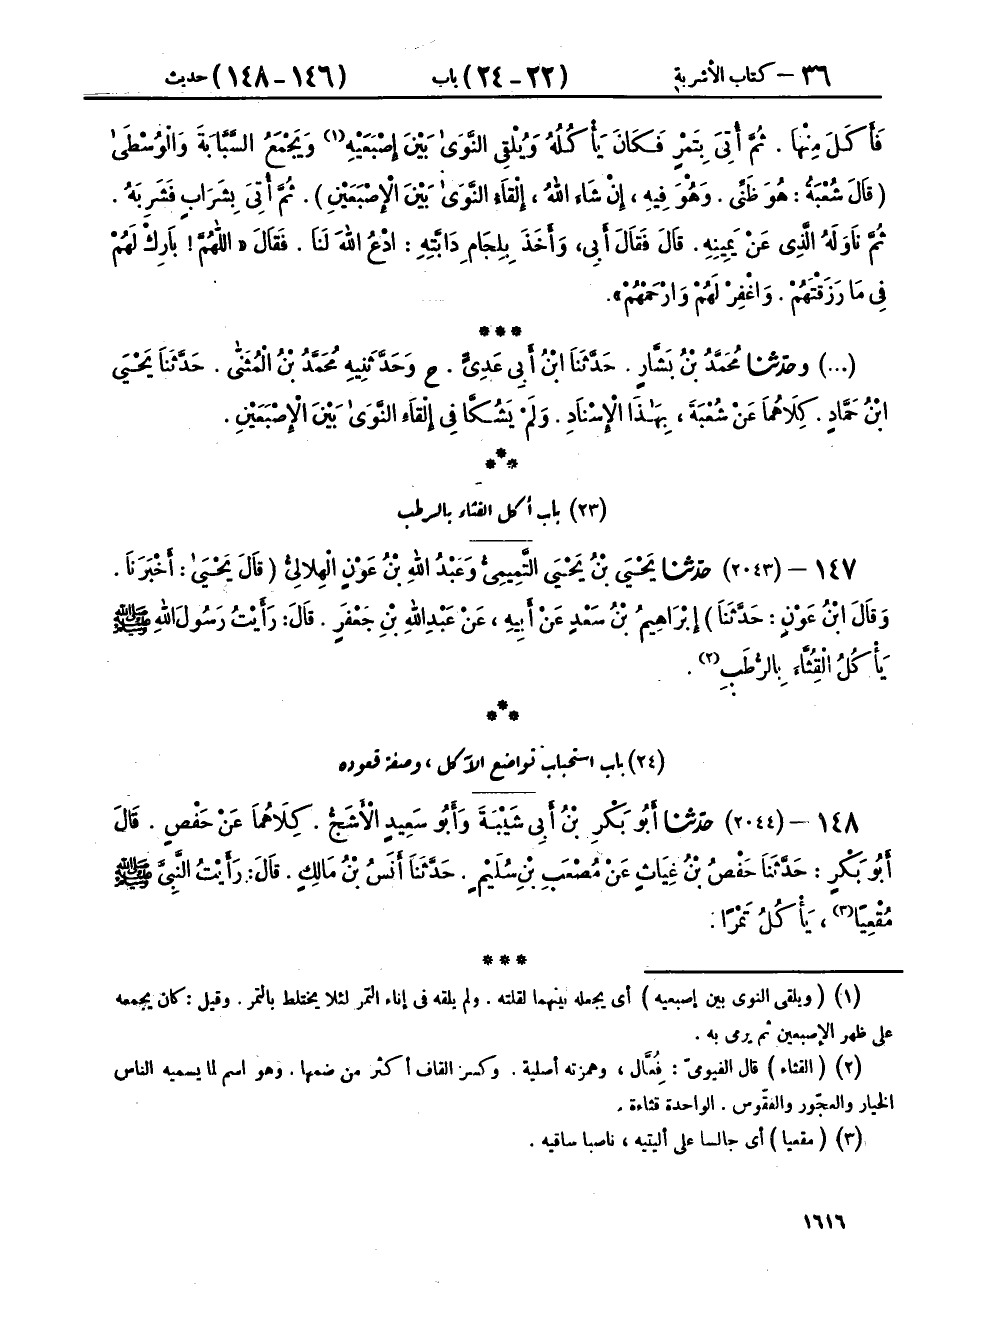 ٣٦ – كتاب الأشربة (٢٢–٢٤) باب (١٤٦–١٤٨) حديث
فَأَكَلَ مِنْهَا . ثُمَّ أُتِيَ بِتَمْرٍ فَكَانَ يَأْكُلُهُ وَيُلْقِي النَّوَىٰ بَيْنَ إِصْبَعَيْهِ(١) وَيَجْمَعُ السَّبَّابَةَ وَالْوُسْطَىٰ
( قَالَ شُعْبَةُ : هُوَ ظَنِّي . وَهُوَ فِيهِ ، إِنْ شَاءَ اللهُ ، إِلْقَاءُ النَّوَىٰ بَيْنَ الْإِصْبَعَيْنِ ) . ثُمَّ أُتِيَ بِشَرَابٍ فَشَرِبَهُ .
ثُمَّ نَاوَلَهُ الَّذِي عَنْ يَمِينِهِ . قَالَ فَقَالَ أَبِي، وَأَخَذَ بِلِجَامِ دَابَّتِهِ : ادْعُ اللهَ لَنَا . فَقَالَ « اللّٰهُمَّ ! بَارِكْ لَهُمْ
فِي مَا رَزَقْتَهُمْ . وَاغْفِرْ لَهُمْ وَارْحَمْهُمْ ».
***
(...) وحَدَّثَنَا مُحَمَّدُ بْنُ بَشَّارٍ . حَدَّثَنَا ابْنُ أَبِي عَدِيٍّ . ح وَحَدَّثَنِيهِ مُحَمَّدُ بْنُ الْمُثَنَّىٰ . حَدَّثَنَا يَحْيَىٰ
ابْنُ حَمَّادٍ . كِلَاهُمَا عَنْ شُعْبَةَ ، بِهَٰذَا الْإِسْنَادِ . وَلَمْ يَشُكَّا فِي إِلْقَاءِ النَّوَىٰ بَيْنَ الْإِصْبَعَيْنِ .
***
(٢٣) باب أكل القثاء بالرطب
١٤٧ – (٢٠٤٣) حَدَّثَنَا يَحْيَىٰ بْنُ يَحْيَىٰ التَّمِيمِيُّ وَعَبْدُ اللهِ بْنُ عَوْنٍ الْهِلَالِيُّ ( قَالَ يَحْيَىٰ : أَخْبَرَنَا .
وَقَالَ ابْنُ عَوْنٍ : حَدَّثَنَا ) إِبْرَاهِيمُ بْنُ سَعْدٍ عَنْ أَبِيهِ ، عَنْ عَبْدِ اللهِ بْنِ جَعْفَرٍ . قَالَ: رَأَيْتُ رَسُولَ اللهِ ﷺ
يَأْكُلُ الْقِثَّاءَ بِالرُّطَبِ(٢) .
***
(٢٤) باب استحباب تواضع الآكل ، وصفة قعوده
١٤٨ – (٢٠٤٤) حَدَّثَنَا أَبُو بَكْرِ بْنُ أَبِي شَيْبَةَ وَأَبُو سَعِيدٍ الْأَشَجُّ . كِلَاهُمَا عَنْ حَفْصٍ . قَالَ
أَبُو بَكْرٍ : حَدَّثَنَا حَفْصُ بْنُ غِيَاثٍ عَنْ مُصْعَبِ بْنِ سُلَيْمٍ . حَدَّثَنَا أَنَسُ بْنُ مَالِكٍ . قَالَ: رَأَيْتُ النَّبِيَّ ﷺ
مُقْعِيًا(٣) ، يَأْكُلُ تَمْرًا .
***
(١) ( ويلقى النوى بين إصبعيه ) أى يجعله بينهما لقلته . ولم يلقه فى إناء التمر لئلا يختلط بالتمر . وقيل : كان يجمعه
على ظهر الإصبعين ثم يرمى به .
(٢) ( القثاء ) قال الفيومىّ : فِعَّال ، وهمزته أصلية . وكسر القاف أكثر من ضمها . وهو اسم لما يسميه الناس
الخيار والعجّور والفقّوس . الواحدة قثاءة .
(٣) ( مقعيا ) أى جالسا على أليتيه ، ناصبا ساقيه .
١٦١٦